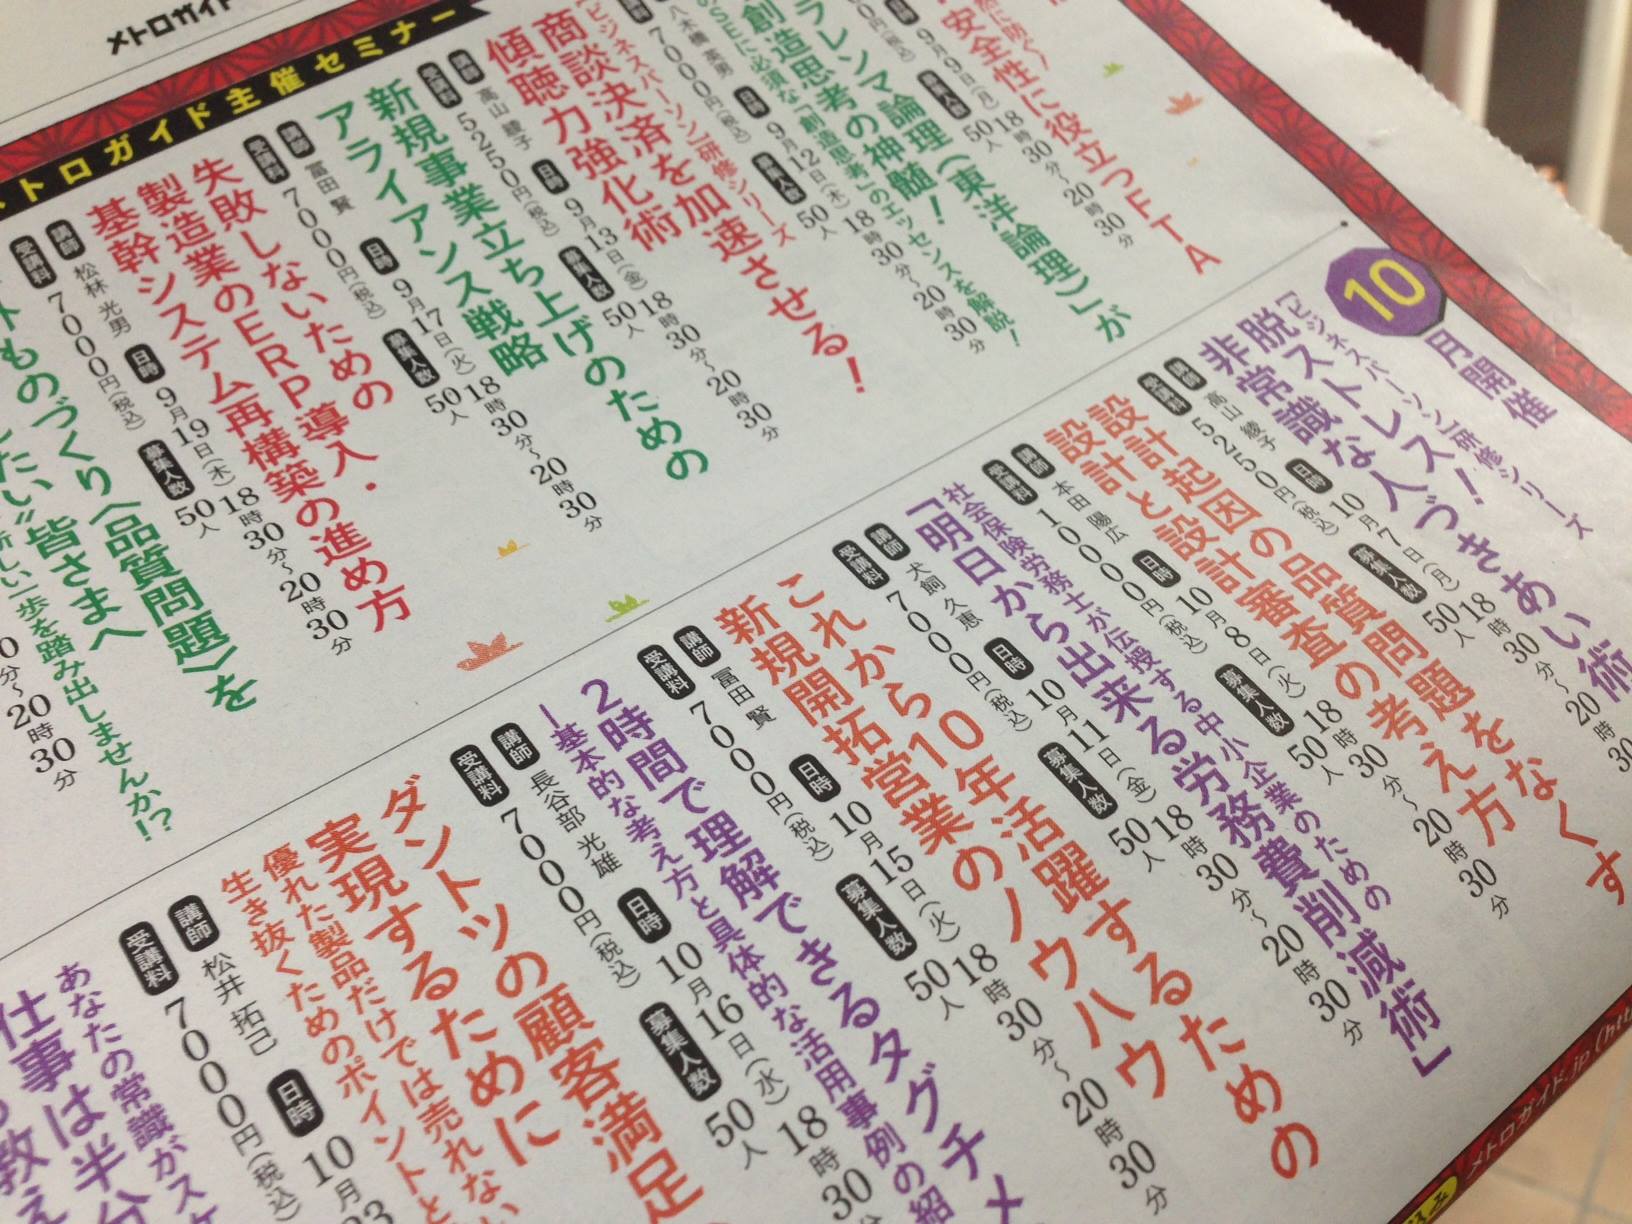 メトロガイド
トロガイド主催セミナー
安全性に役立つFTA
9月9日(月)18時30分~20時30分
募集人数
50人
ラレンマ論理(東洋論理)」が
創造思考の神髄!
のSEに必須な「創造思考」のエッセンスを解説!
八木橋 英男
日時
9月12日(木)18時30分~20時30分
7000円(税込)
募集人数
50人
ビジネスパーソン研修シリーズ
商談決済を加速させる!
傾聴力強化術
講師
高山 綾子
日時
9月13日(金)18時30分~20時30分
受講料
5250円(税込)
募集人数
50人
新規事業立ち上げのための
アライアンス戦略
講師
冨田 賢
日時
9月17日(火)18時30分~20時30分
受講料
7000円(税込)
募集人数
50人
失敗しないための
製造業のERP導入・
基幹システム再構築の進め方
講師
松林 光男
日時
9月19日(木)18時30分~20時30分
受講料
7000円(税込)
募集人数
50人
ものづくり〈品質問題〉を
たい”皆さまへ
新しい一歩を踏み出しませんか!?
0分~20時30分
10月開催
[ビジネスパーソン]研修シリーズ
脱ストレス!
非常識な人づきあい術
講師
高山 綾子
日時
10月7日(月)18時30分~20時30
受講料
5250円(税込)
募集人数
50人
設計起因の品質問題をなくす
設計と設計審査の考え方
講師
本田 陽広
日時
10月8日(火)18時30分~20時30分
受講料
10000円(税込)
募集人数
50人
社会保険労務士が伝授する中小企業のための
「明日から出来る労務費削減術」
講師
犬飼 久恵
日時
10月11日(金)18時30分~20時30分
受講料
7000円(税込)
募集人数
50人
これから10年活躍するための
新規開拓営業のノウハウ
講師
冨田 賢
日時
10月15日(火)18時30分~20時30分
受講料
7000円(税込)
募集人数
50人
2時間で理解できるタグチメ
―基本的な考え方と具体的な活用事例の紹
講師
長谷部 光雄
日時
10月16日(水)18時30
受講料
7000円(税込)
募集人数
50人
ダントツの顧客満足
実現するために
優れた製品だけでは売れない
生き抜くためのポイントと
講師
松井 拓己
日時
10月23
受講料
7000円(税込)
あなたの常識がスケ
仕事は半分
教え
メトロガイド.jp(htt